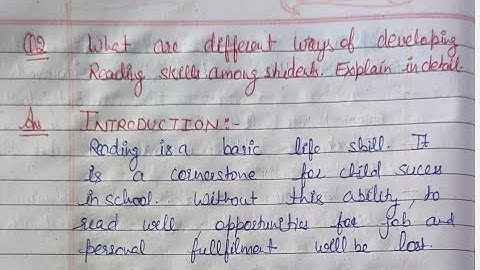 Q2 What are different ways of developing
Reading skills among students. Explain in detail.
Ans INTRODUCTION:-
Reading is a basic life skill. It
is a cornerstone for child sucess
in school. Without this ability, to
read well, opportunities for job and
personal fullfilment will be lost.